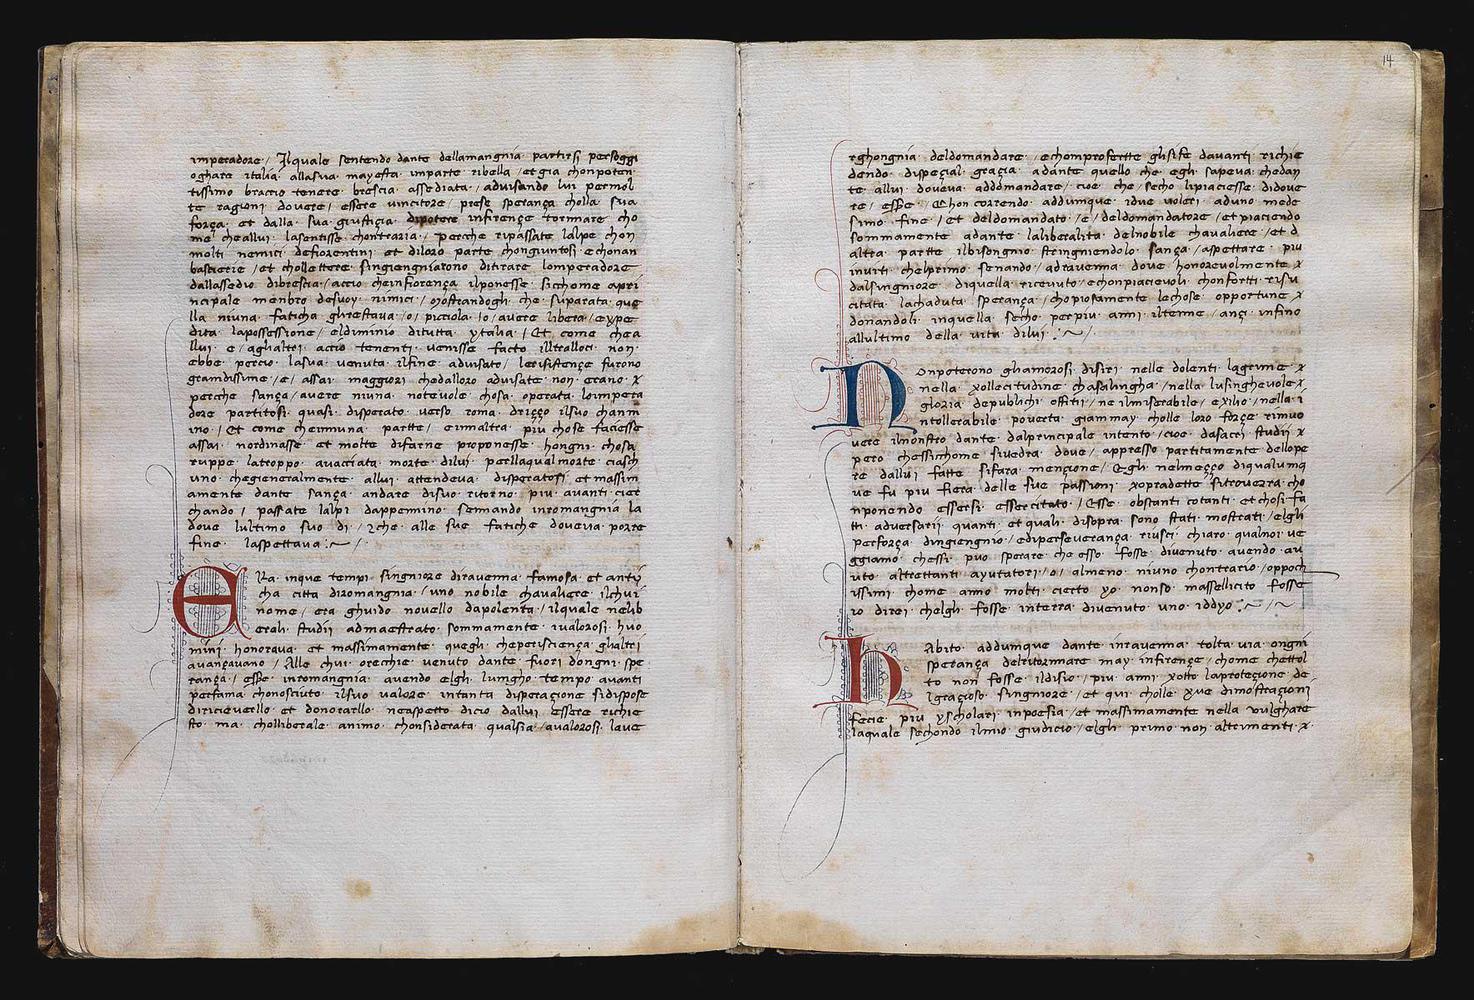 imperadore / Ilquale sentendo dante dellamangnia partirsi persoggi
oghare italia allasua mayesta imparte ribella / et gia chonpoten
tissimo braccio tenere brescia assediata / advisando lui permol
te ragioni dovere / essere vincitore / prese sperança cholla sua
força / et dalla sua giustiçia dipotere infirençe tornnare cho
me cheallui lasentisse chontraria / perche ripassate lalpe chon
molti nemici defiorentini et diloro parte chongiuntosi e chonan
bascierie / et chollettere singiengniarono ditirare lomperadore
dallassedio dibrescia / accio cheinfiorença ilponesse sicchome apri
ncipale menbro desuoy nimici / mostrandogli che suparata que
lla niuna faticha glirestava / o / picciola / o / avere libera / expe
dita lapossessione / eldiminio ditutta ytalia / Et come chea
llui e / aglialtri accio tenenti venisse fatto iltrallocì non
ebbe percio lasua venuta ilfine advisato / leresistençe furono
grandissime / e / assai maggiori chedalloro advisate non erano x
perche sança / avere niuna notevole chosa operata lompera
dore partitosi quasi disperato verso roma driçço ilsuo chamm
ino / Et come cheinnuna partte / einnaltra piu chose faciesse
assai nordinasse et molte difarne proponesse hongni chosa
ruppe latroppo avacciata morte dilui perllaqual morte ciasch
uno chegieneralmente allui attendeva disperatosi et massim
amente dante sança andare disuo ritorno piu avanti cier
chando / passate lalpi dappennino sennando inromangnia la
dove lultimo suo di / che alle sue fatiche doveva porre
fine laspettava
ERa inque tempi singniore diravenna famosa et anty
cha citta diromangnia / uno nobile chavaliere ilchui
nome / era ghuido novello dapolenta / ilquale nelib
erali studii admaestrato sommamente ivalorosi huo
mini honorava et massimamente quegli cheperisciença ghaltri
avançavano / Alle chui orecchie venuto dante fuori dongni spe
rança / esse inromangnia avendo elgli lungho tempo avanti
perfama chonosciuto ilsuo valore intanta disperaçione sidispose
diricievello et donorarllo neaspetto dicio dallui essere richie
sto ma cholliberale animo chonsiderata qualsia / avalorosi lave
14
rghongnia deldomandare / echomprofertte glisife davanti richie
dendo dispeçial graçia adante quello che egli sapeva chedan
te allui doveva addomandare / cioe che / secho lipiaciesse didove
re / esse / Chon correndo addumque idue voleri aduno mede
simo fine / et deldomandato / e / deldomandatore / et piaciendo
sommamente adante laliberalita delnobile chavaliere / et d
altra partte ilbisongnio stringniendolo sança / aspettare piu
inviti chelprimo senando / adravenna dove honorevolmente x
dalsingniore diquella ricevuto / echonpiacievoli chonfortti risu
citata lachaduta sperança / chopiosamente lechose opportune x
donandoli inquella secho perpiu anni iltenne / ançi infino
allultimo della vita dilui
NOnpoterono ghamorosi disiri nelle dolenti lagrime x
nella xollecitudine chasalingha / nella lusinghevole x
gloria depublichi offitii / ne ilmiserabile / exilio / nella i
ntollerabile poverta giammay cholle loro forçe rimuo
vere ilnonstro dante dalprincipale intento / cioe dasacri studii x
pero chessicchome sivedra dove / appresso partitamente dellope
re dallui fatte sifara mençione / Egli nelmeçço diqualunq
ue fu piu fiera delle sue passioni xopradette sitroverra cho
nponendo essersi essercitato / Esse obstanti cotanti et chosi fa
tti adversarii quanti et quali disopra sono stati mostrati / elgli
perforça dingiengnio / ediperseverança riusci chiaro qualnoi ve
ggiamo chessi puo sperare che esso fosse divenuto avendo av
uto altrettanti ayutatori / o / almeno niuno chontrario / oppoch
issimi chome anno molti cierto yo nonso massellicito fosse
io direi chelgli fosse interra divenuto uno iddyo
hAbito addumque dante inravenna tolta via ongni
sperança delritornnare may infirençe / chome chettol
to non fosse ildisio / piu anni xotto laproteçione de
lgraçioso singniore / et qui cholle xue dimostraçioni
fecie piu yscholari inpoesia / et massimamente nella vulghare
laquale sechondo ilmio giudicio / elgli primo non altrimenti x